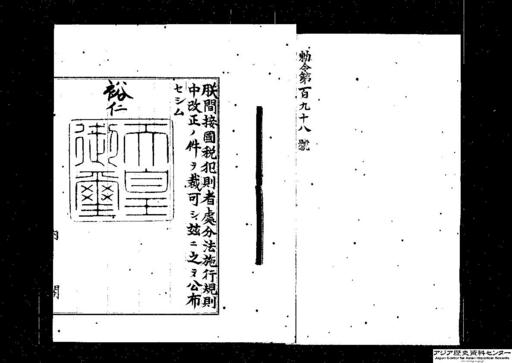 勅令第百九十八號
朕間接國税犯則者處分法施行規則
中改正ノ件ヲ裁可シ茲ニ之ヲ公布
セシム
裕仁
天皇御璽
内
閣
アジア歴史資料センター
Japan Center for Asian Historical Records